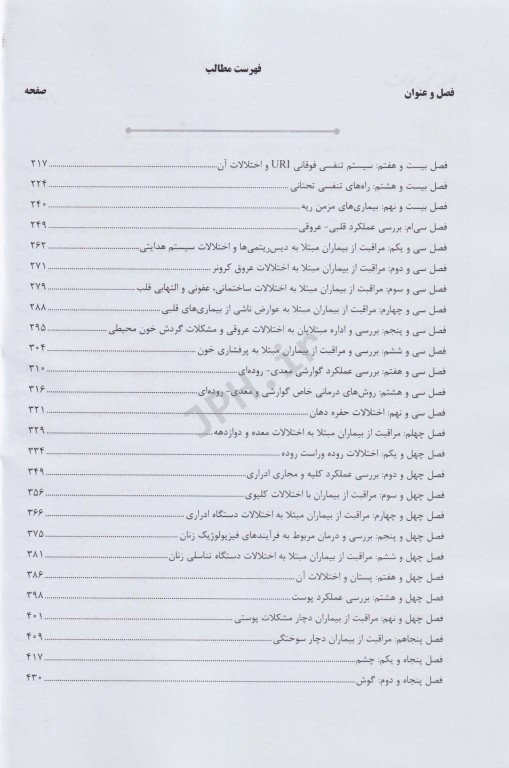 فهرست مطالب
فصل و عنوان صفحه
فصل بیست و هفتم: سیستم تنفسی فوقانی URI و اختلالات آن ۲۱۷
فصل بیست و هشتم: راه‌های تنفسی تحتانی ۲۲۴
فصل بیست و نهم: بیماری‌های مزمن ریه ۲۴۰
فصل سی‌ام: بررسی عملکرد قلبی- عروقی ۲۴۹
فصل سی و یکم: مراقبت از بیماران مبتلا به دیس‌ریتمی‌ها و اختلالات سیستم هدایتی ۲۶۲
فصل سی و دوم: مراقبت از بیماران مبتلا به اختلالات عروق کرونر ۲۷۱
فصل سی و سوم: مراقبت از بیماران مبتلا به اختلالات ساختمانی، عفونی و التهابی قلب ۲۷۹
فصل سی و چهارم: مراقبت از بیماران مبتلا به عوارض ناشی از بیماری‌های قلبی ۲۸۸
فصل سی و پنجم: بررسی و اداره مبتلایان به اختلالات عروقی و مشکلات گردش خون محیطی ۲۹۵
فصل سی و ششم: بررسی و مراقبت از بیماران مبتلا به پرفشاری خون ۳۰۴
فصل سی و هفتم: بررسی عملکرد گوارشی معدی- روده‌ای ۳۱۰
فصل سی و هشتم: روش‌های درمانی خاص گوارشی و معدی- روده‌ای ۳۱۶
فصل سی و نهم: اختلالات حفره دهان ۳۲۱
فصل چهلم: مراقبت از بیماران مبتلا به اختلالات معده و دوازدهه ۳۲۹
فصل چهل و یکم: اختلالات روده وراست روده ۳۳۴
فصل چهل و دوم: بررسی عملکرد کلیه و مجاری ادراری ۳۴۹
فصل چهل و سوم: مراقبت از بیماران با اختلالات کلیوی ۳۵۶
فصل چهل و چهارم: مراقبت از بیماران مبتلا به اختلالات دستگاه ادراری ۳۶۶
فصل چهل و پنجم: بررسی و درمان مربوط به فرآیندهای فیزیولوژیک زنان ۳۷۵
فصل چهل و ششم: مراقبت از بیماران مبتلا به اختلالات دستگاه تناسلی زنان ۳۸۱
فصل چهل و هفتم: پستان و اختلالات آن ۳۸۶
فصل چهل و هشتم: بررسی عملکرد پوست ۳۹۸
فصل چهل و نهم: مراقبت از بیماران دچار مشکلات پوستی ۴۰۱
فصل پنجاهم: مراقبت از بیماران دچار سوختگی ۴۰۹
فصل پنجاه و یکم: چشم ۴۱۷
فصل پنجاه و دوم: گوش ۴۳۰
JPH.ir